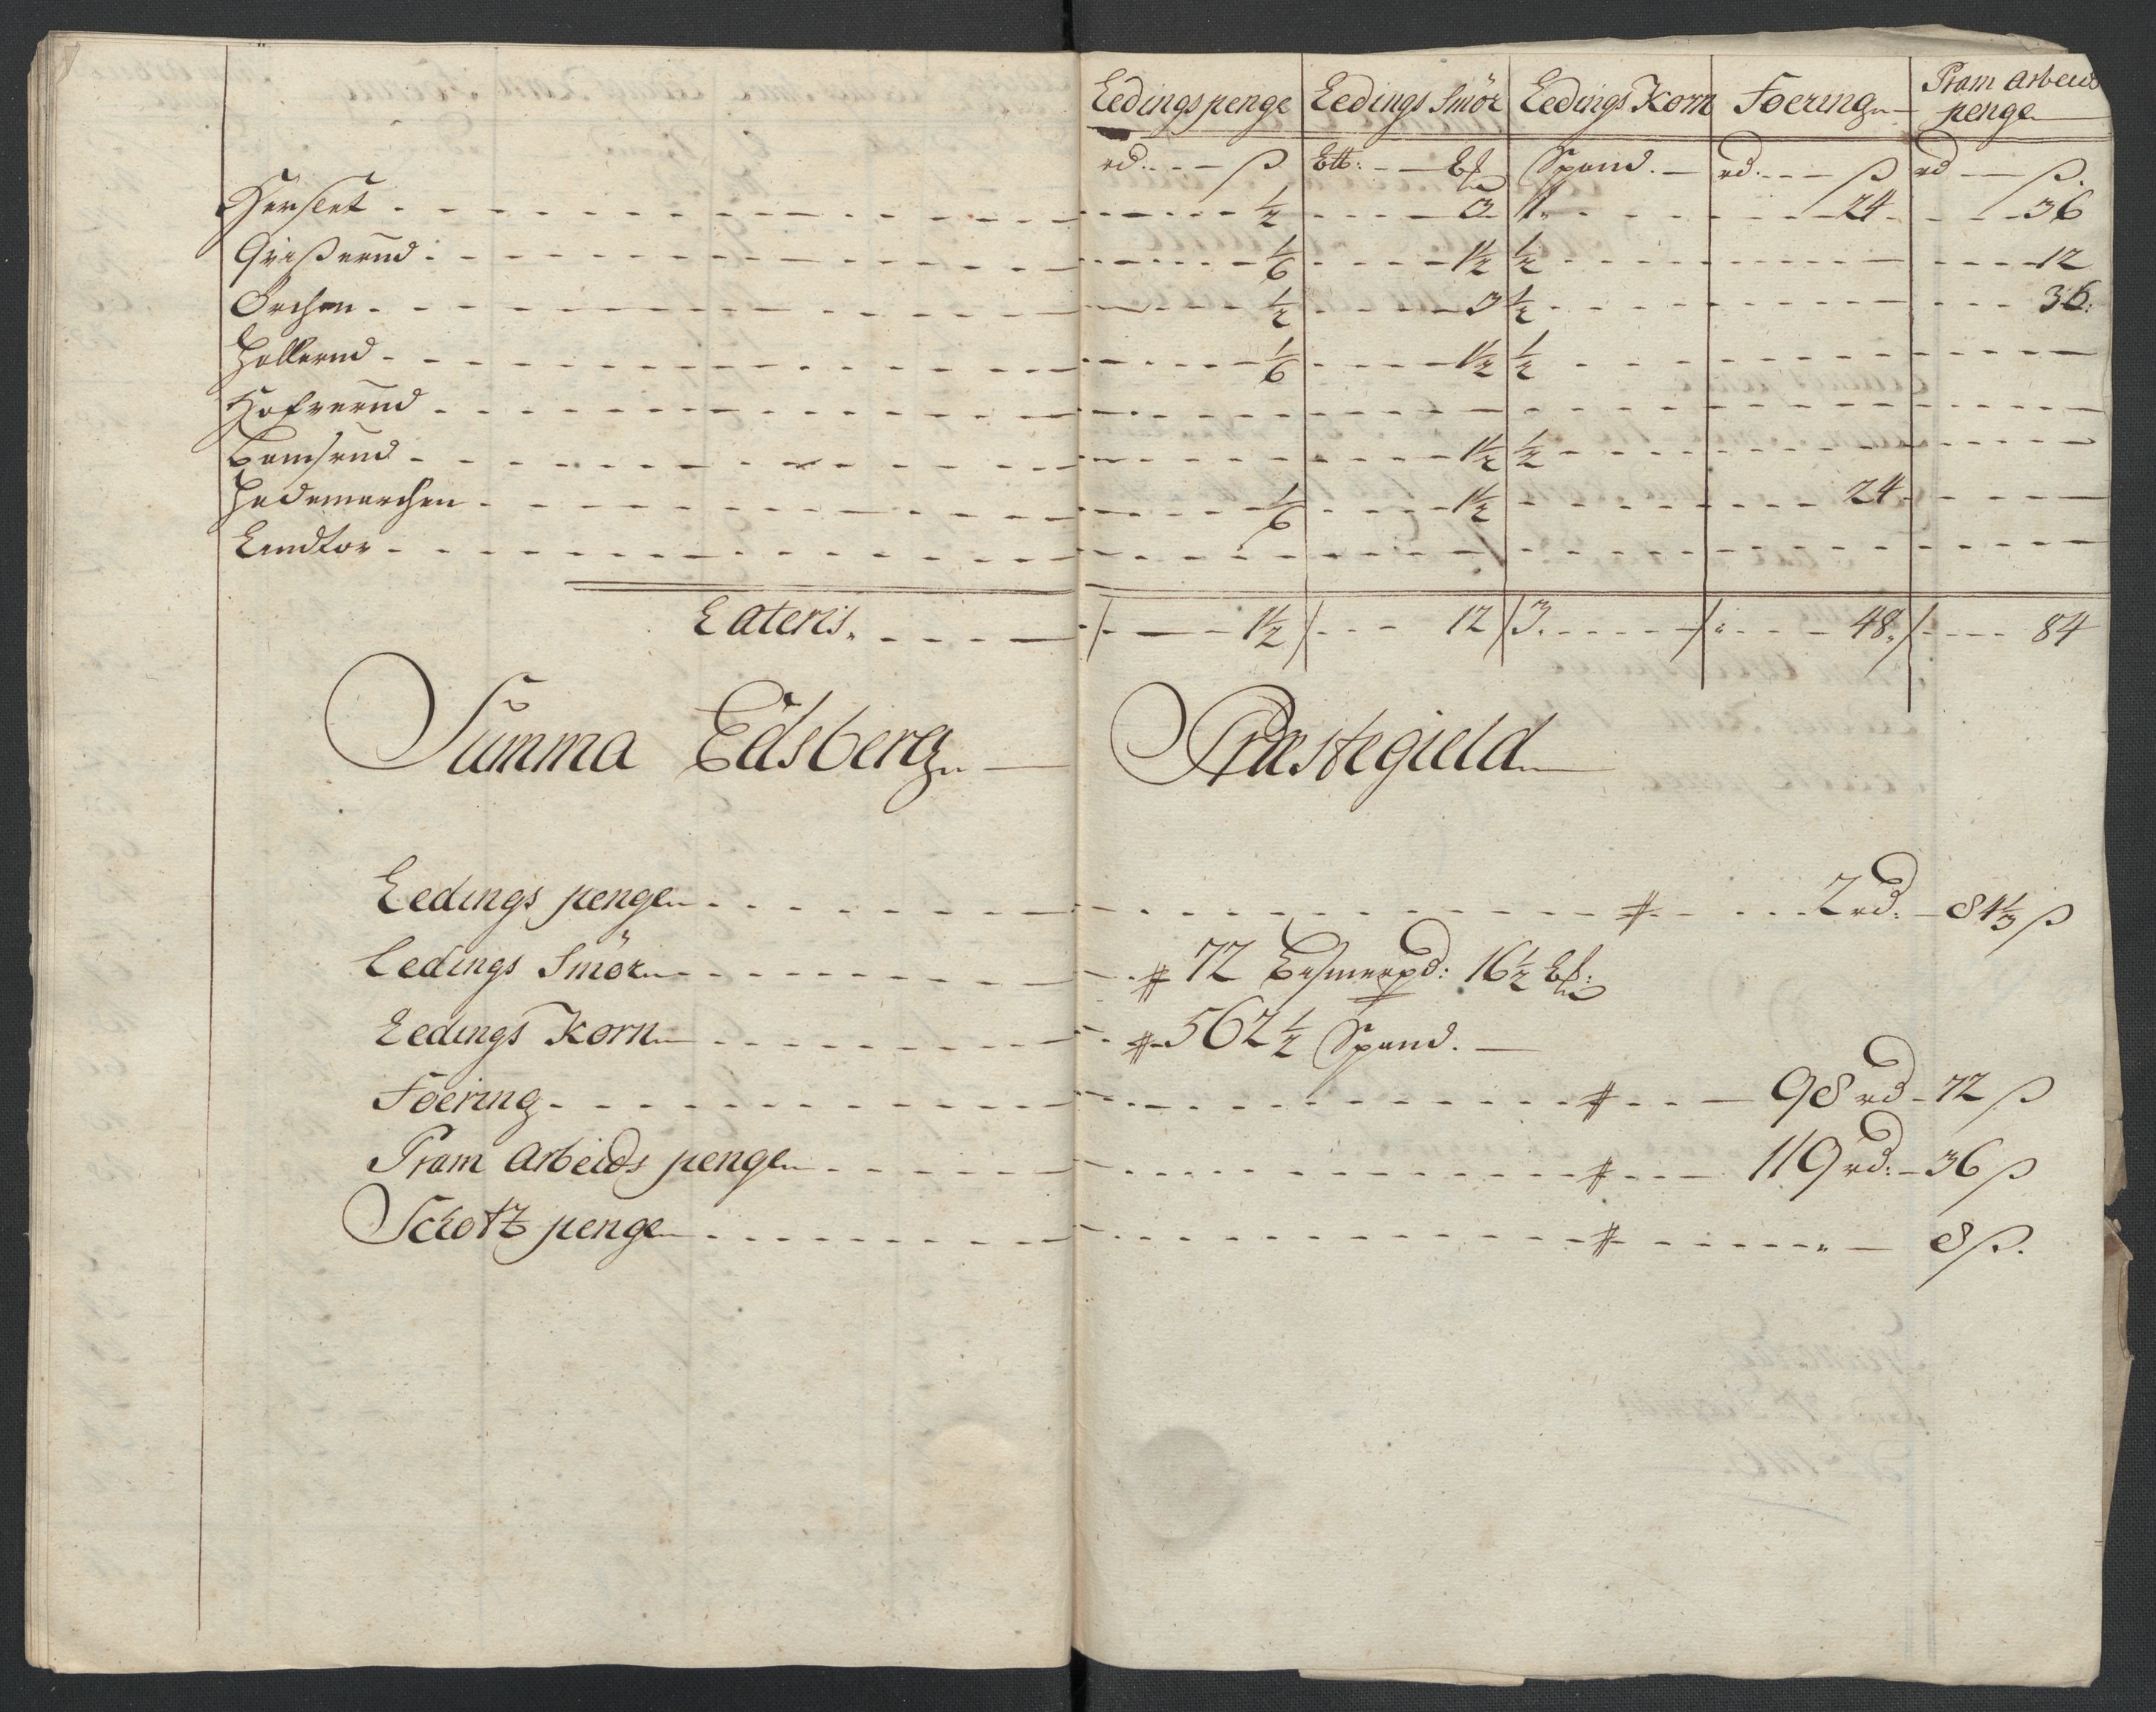 Ledings penge | Ledings Smör | Ledings Korn | Foering | Pram Arbeids penge
rd. ß | B℔: Bß | Spand. | rd. ß | rd ß.
Herslet ½ | 3 | 1 | 24 | 36
Grißerud 1/6 | 1½ | ½ | | 12
Orchen ½ | 3 | ½ | | 36
Hollerud 1/6 | 1½ | ½
Hofverud
Bamsrud 1½ | ½
Hedemarchen 1/6 | 1½ | | 24
Lundtor
Lateris. 1½ | 12 | 3. | 48. | 84
Summa Edsberg Præstegield
Ledings penge 2 rd: 84⅓ ß
Ledings Smör 72 Besmerpd: 16½
Ledings Korn 562½ Spand.
Foering 98 rd 72 ß
Pram Arbeids penge 119 rd: 36 ß
Schotz penge 8 ß.